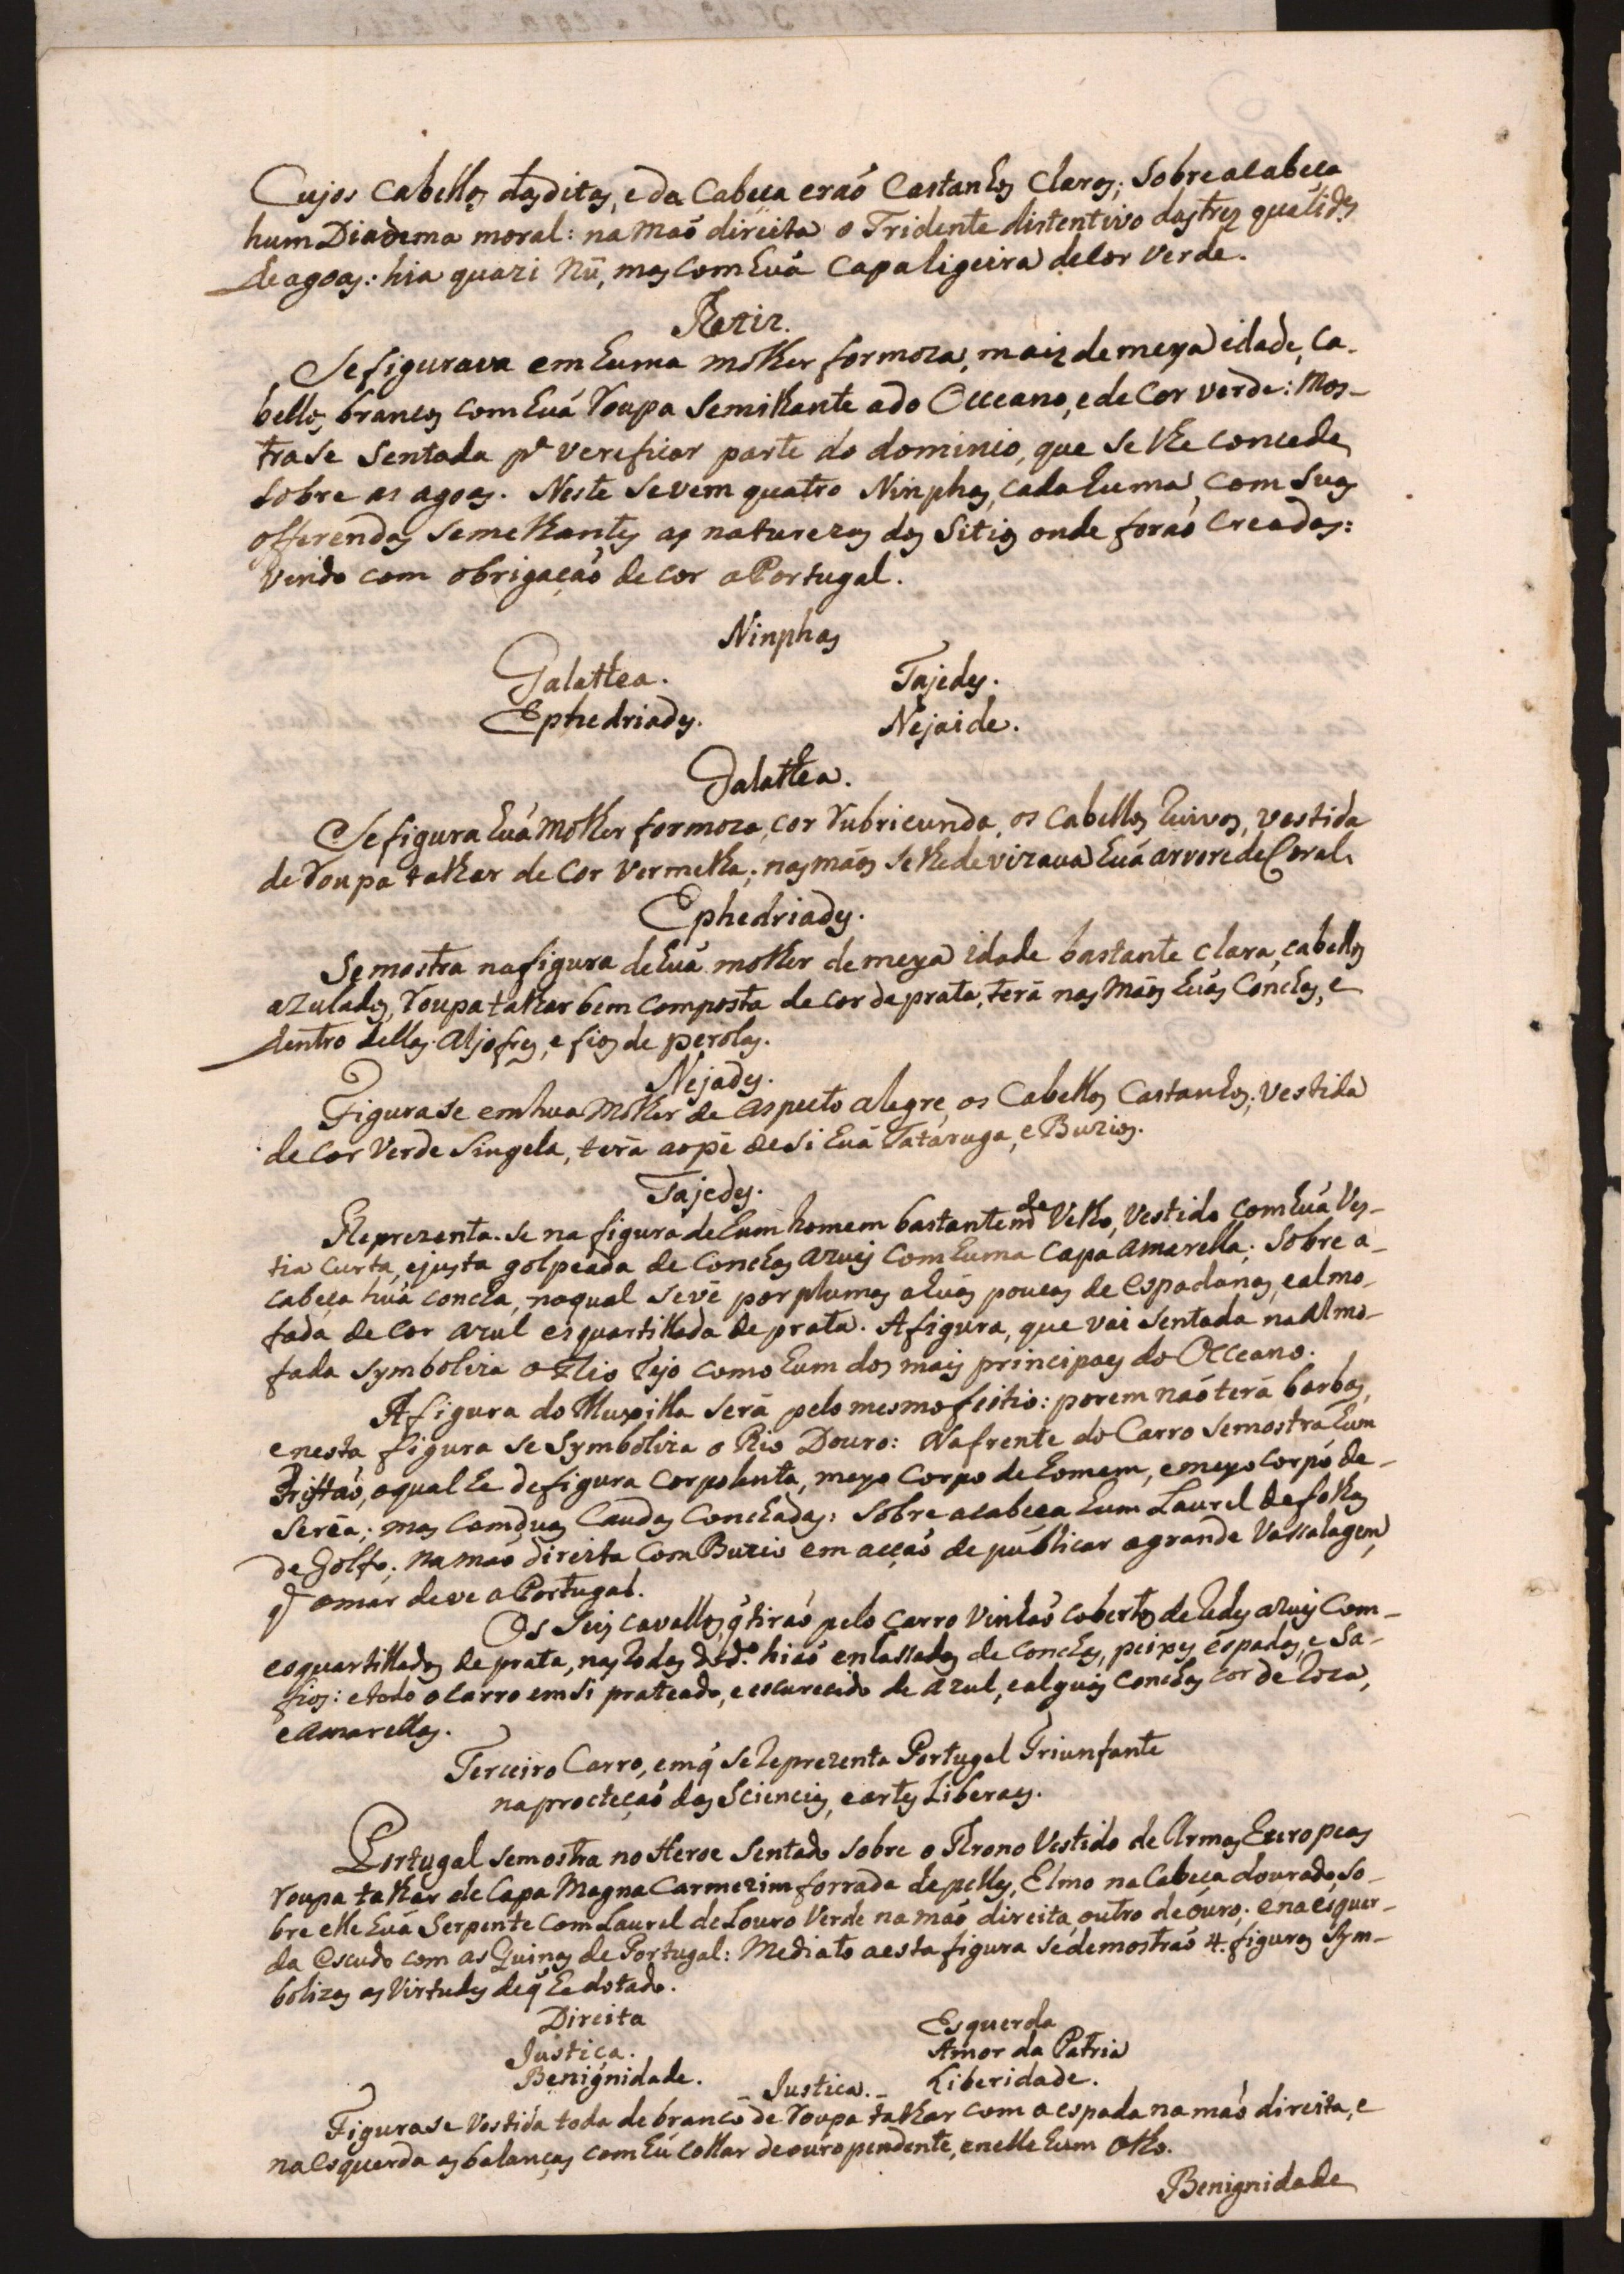 Cujos cabellos das ditas, e da Cabeça eraõ Castanhos Claros; Sobre a cabeça
hum Diadema moral: na maõ direita o Tridente distentivo das tres qualids
de agoas: hia quazi Nũ, mas com huã Capa ligeira de Cor Verde.
Thetis.
Se figurava em huma molher formoza, mais de meya idade, Ca-
bellos brancos com huã Roupa Semilhante a do Occeano, e de Cor verde: Mos-
tra se Sentada pa vereficar parte do dominio, que Se lhe concede
Sobre as agoas. Neste Se vem quatro Ninphas, cada huma com Suas
offerendas Semelhantes as naturezas dos Sitios onde foraõ Creadas:
Vindo com obrigaçaõ de cor a Portugal.
Ninphas
Galathea. Tajedes.
Ephedriades. Nejaide.
Galathea.
Se figura huã Molher formoza, cor Rubricunda, os Cabellos Ruivos, vestida
de Roupa talhar de Cor Vermelha; nas mãos Se lhe devizava huã arvore de Coral.
Ephedriades.
Se mostra na figura de huã molher de meya idade bastante clara, cabellos
azulados, Roupa talhar bem composta de cor de prata, terá nas Mãos huãs Conchas, e
dentro dellas Aljofres, e fios de perolas.
Nejades.
Figura se em hua Molher de aspecto alegre, os Cabellos Castanhos; vestida
de Cor Verde Singela, terá ao pé de Si huã Tataruga, e Buzios.
Tajedes.
Reprezenta-se na figura de hum homem bastantemde Velho, Vestido com huã Ves-
tia curta, e justa golpeada de Conchas azuis com huma Capa amarella; Sobre a
cabeça huã concha, na qual Se vé por plumas alvas poucas de Espadanas, e almo-
fada de cor azul esquartillada de prata. A figura, que vai Sentada na Almo-
fada Symboliza o Rio Tejo como hum dos mais principaes do Occeano.
A figura do Muxilla Será pelo mesmo feitio: porem naõ terá barbas,
e nesta figura se Symboliza o Rio Douro: Na frente do Carro Se mostra hum
Trittaõ, o qual he de figura corpolenta, meyo Corpo de homem, e meyo corpo de
Seréa; mas com duas Caudas Conchadas: Sobre a cabeça hum Laurel de folhas
de Golfo; na maõ direita com Buzio em acçaõ de publicar a grande Vassalagem,
q̃ o mar deve a Portugal.
Os Seis cavallos, q̃ tiraõ pelo Carro vinhaõ cobertos de Redes azuis Com-
esquartillados de prata, nas Rodas do do. hiaõ enlassados de conchas, peixes espadas, e Sa-
fios: e todo o Carro em Si prateado, e escurecido de azul, e alguãs Conchas cor de Roza,
e Amarellas.
Terceiro Carro, em q̃ Se Reprezenta Portugal Triunfante
na procteçaõ das Sciencias, e artes Liberaes.
Portugal Se mostra no Heroe Sentado Sobre o Throno Vestido de Armas Europeas
Roupa talhar de Capa Magna Carmezim forrada de pelles, Elmo na Cabeça dourado, So-
bre elle huã Serpente com Laurel de Louro Verde na maõ direita, outro de ouro; e na esquer-
da Escudo com as Quinas de Portugal: Mediato a esta figura Se demostraõ 4. figuras Sym-
bolizas as Virtudes de q̃ he dotado.
Direita Esquerda
Justiça. Amor da Patria
Benignidade. Liberidade.
- Justica. -
Figura se Vestida toda de branco de Roupa talhar com a espada na maõ direita, e
na esquerda as balanças com hú collar de ouro pendente, e nelle hum Olho.
Benignidade